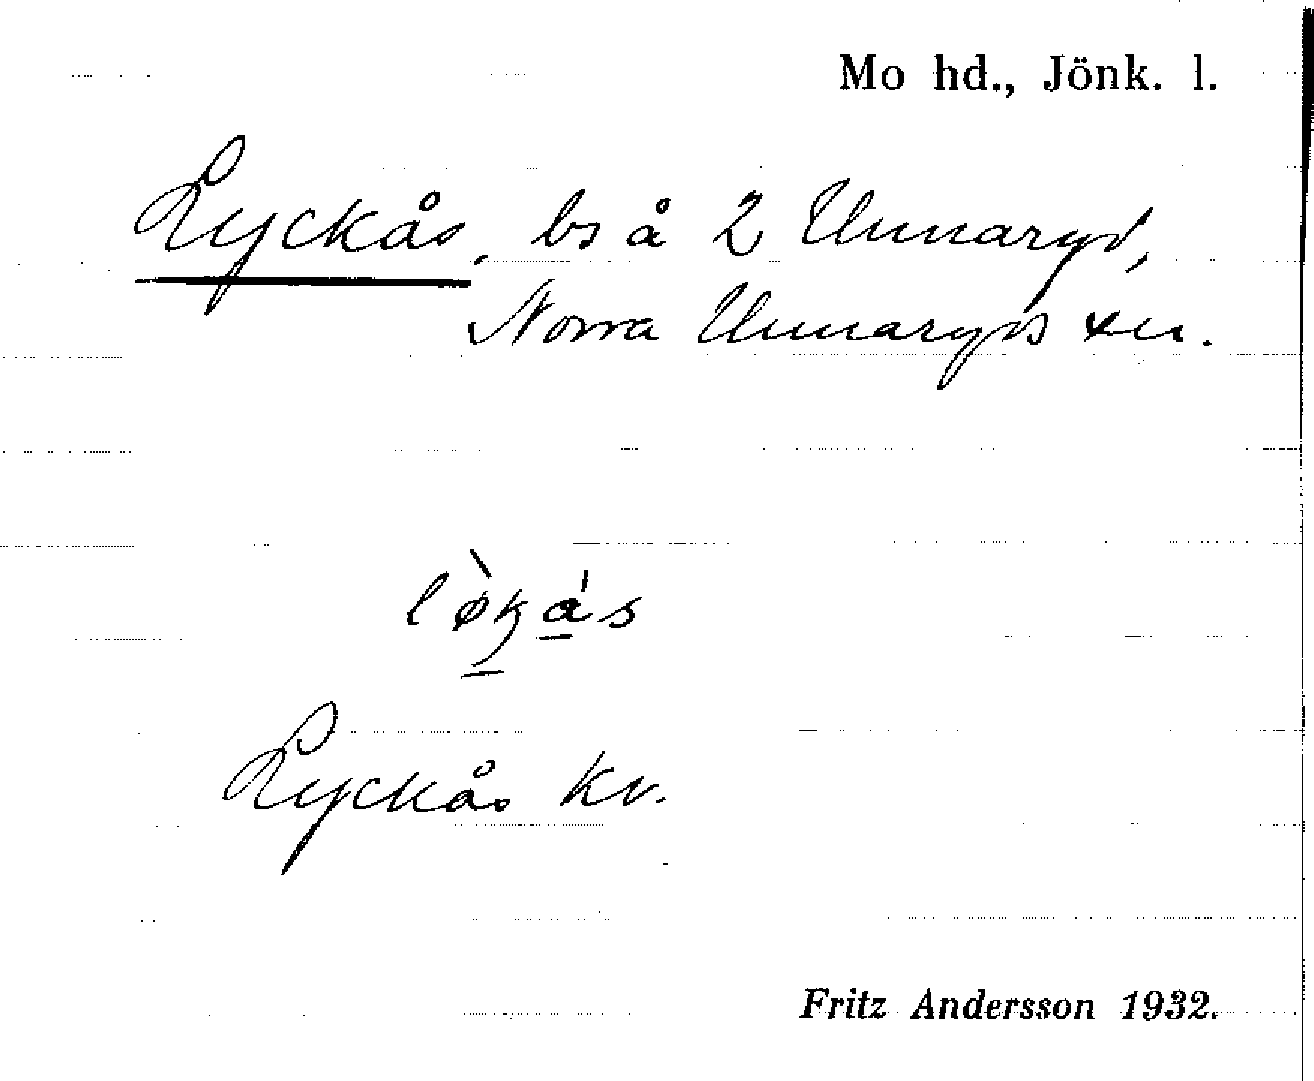 Mo hd., Jönk. l.
Lyckås, bs å 2 Unnaryd,
Norra Unnaryds sn.
lø̀ka̠s
Lyckås kv.
Fritz Andersson 1932.